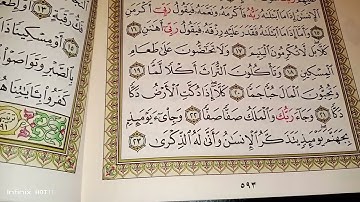 ٱلْإِنسَٰنُ إِذَا مَا ٱبْتَلَىٰهُ رَبُّهُۥ فَأَكْرَمَهُۥ وَنَعَّمَهُۥ فَيَقُولُ رَبِّىٓ أَكْرَمَنِ
١٥ وَأَمَّآ إِذَا مَا ٱبْتَلَىٰهُ فَقَدَرَ عَلَيْهِ رِزْقَهُۥ فَيَقُولُ رَبِّىٓ أَهَٰنَنِ ١٦
كَلَّا بَل لَّا تُكْرِمُونَ ٱلْيَتِيمَ ١٧ وَلَا تَحَٰٓضُّونَ عَلَىٰ طَعَامِ
ٱلْمِسْكِينِ ١٨ وَتَأْكُلُونَ ٱلتُّرَاثَ أَكْلًا لَّمًّا ١٩
وَتُحِبُّونَ ٱلْمَالَ حُبًّا جَمًّا ٢٠ كَلَّآ إِذَا دُكَّتِ ٱلْأَرْضُ دَكًّا
دَكًّا ٢١ وَجَآءَ رَبُّكَ وَٱلْمَلَكُ صَفًّا صَفًّا ٢٢ وَجِا۟ىٓءَ يَوْمَئِذٍۭ
بِجَهَنَّمَ يَوْمَئِذٍ يَتَذَكَّرُ ٱلْإِنسَٰنُ وَأَنَّىٰ لَهُ ٱلذِّكْرَىٰ ٢٣
٥٩٣
فَكُّ رَقَبَةٍ ١٣
أَوْ مِسْكِينًا ذَا
بِٱلصَّبْرِ وَتَوَاصَوْا۟
كَفَرُوا۟ بِـَٔايَٰتِنَا
Infinix HOT